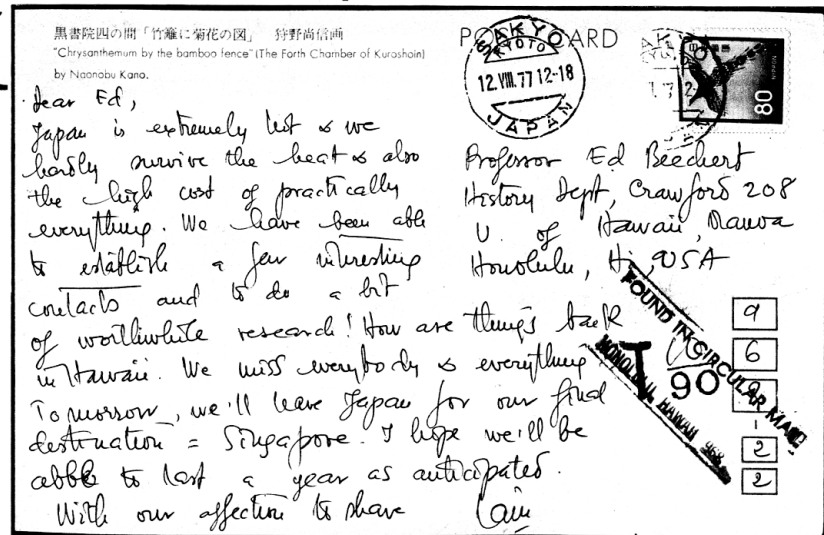 黒書院四の間「竹籬に菊花の図」 狩野尚信画
"Chrysanthemum by the bamboo fence" (The Forth Chamber of Kuroshoin)
by Naonobu Kano.
POST CARD
SAKYO
KYOTO
12.VIII.77 12-18
JAPAN
日本郵便
NIPPON
80
Dear Ed,
Japan is extremely hot & we
hardly survive the heat & also
the high cost of practically
everything. We have been able
to establish a few interesting
contacts and to do a bit
of worthwhile research! How are things back
in Hawaii. We miss everybody & everything
Tomorrow, we'll leave Japan for our final
destination = Singapore. I hope we'll be
able to last a year as anticipated.
With our affection to share
Professor Ed Beechert
History Dept, Crawford 208
U. of Hawaii, Manoa
Honolulu, Hi, USA
FOUND IN CIRCULAR MAIL
HONOLULU, HAWAII
T
90
9
6
2
2